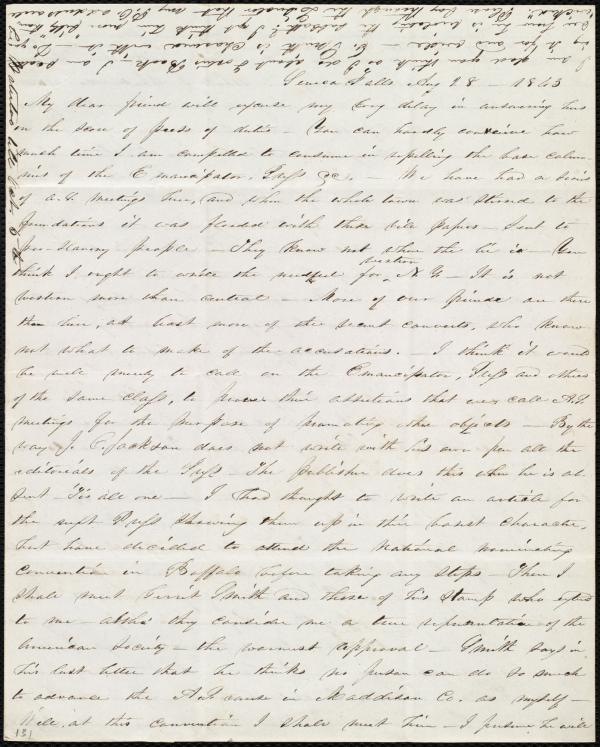 Seneca Falls Aug 28 - 1843
My dear friend will excuse my long delay in answering hers
on the score of press of duties - You can hardly conceive how
much time I am compelled to consume in repelling the base calum-
nies of the Emancipator, Press &c. - We have had a series
of A.S. meetings here, and when the whole town was stirred to the
foundations it was flooded with these vile papers - sent to
pro-slavery people - They know not where the lie is - You
think I ought to write the needful for N.Y - It is not
western more than central - More of our friends are there
than here, at least more of the recent converts, who know
not what to make of the accusations. - I think it would
be well merely to call on the Emancipator, Press and others
of the same class, to prove their assertions that we call A.S.
meetings for the purpose of promoting other objects - By the
way J. C. Jackson does not write with his own pen all the
editorials of the Press - The publisher does this when he is ab-
sent 'Tis all one - I had thought to write an article for
the next Press showing them up in their basest character,
but have decided to attend the national nominating
convention in Buffalo before taking any steps - There I
shall meet Gerrit Smith and those of his stamp who extend
to me - altho' they consider me a true representative of the
American Society - the warmest approval - Smith says in
his last letter that he thinks no person can do so much
to advance the A.S. cause in Maddison Co. as myself -
Well, at this convention I shall meet him - I presume he will
131